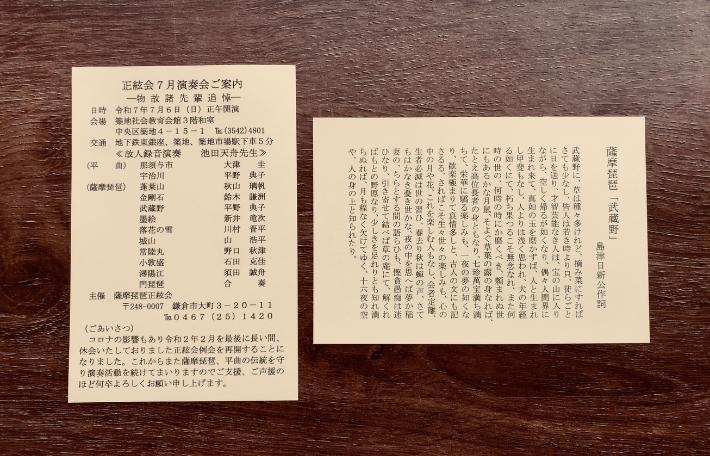 正絃会７月演奏会ご案内
―物故諸先輩追悼―
日時　令和７年７月６日（日）正午開演
会場　築地社会教育会館３階和室
中央区築地４－１５－１　℡(3542)4801
交通　地下鉄東銀座、築地、築地市場駅下車５分
≪故人録音演奏　池田天舟先生≫
（平　曲）　那須与市　大津　圭
宇治川　平野　典子
（薩摩琵琶）　蓬莱山　秋山　瑞帆
金剛石　鈴木　謙洲
武蔵野　平野　典子
墨絵　新井　竜次
落花の雪　川村　晋平
城山　山　浩平
常陸丸　野口　秋津
小敦盛　石田　克佳
潯陽江　須田　誠舟
門琵琶　合　奏
主催　薩摩琵琶正絃会
〒248-0007　鎌倉市大町３－２０－１１
℡０４６７（２５）１４２０
（ごあいさつ）
コロナの影響もあり令和２年２月を最後に長い間、
休会いたしておりました正絃会例会を再開することに
なりました。これからまた薩摩琵琶、平曲の伝統を守
り演奏活動を続けてまいりますのでご支援、ご声援の
ほど何卒よろしくお願い申し上げます。
薩摩琵琶「武蔵野」
島津日新公作詞
武蔵野に、草は種々多けれど、摘み菜にすれば
さても少なし、皆人は若き時より只、徒らごと
に日を送り、才智芸能なき人は、宝の山に入り
ながら、空しく帰るが如くなり、偶々人間界に
生まれ来て、真如の玉を磨かずば、人と生まれ
し甲斐もなし、人よりは浅く思われ、犬の年経
る如くにて、朽ち果つるこそ無念なれ、また何
時の世の、何時の時にか磨くべき、頼まれぬ世
にもあるかな月展、そよぐ草葉の露の身なれば
たとえ高位長者の身ともなり、七珍万宝満ち満
ちて、栄華に驕る楽しみも、一夜の夢の如くな
り、歓楽極まりて哀情多しと、古人の文にも記
さるる、さればこそ生々世々の楽しみも、心の
中の月や花、これを楽しむ人もなし、会者定離、
生者必滅は世の習ひ、春去り秋は鹿の声、さて
もはかなき憂き世かな、夜の中を思へば夢か稲
妻の、ちらとする間の語らひも、慳貪愚痴は迷
ひなり、引き寄せて結べば草の庵にて、解くれ
ばもとの野原なり、少しきを足れりとも知れ満
ちぬれば、月も程なく欠けてゆく、十六夜の空
や、人の身の上と知られたり。